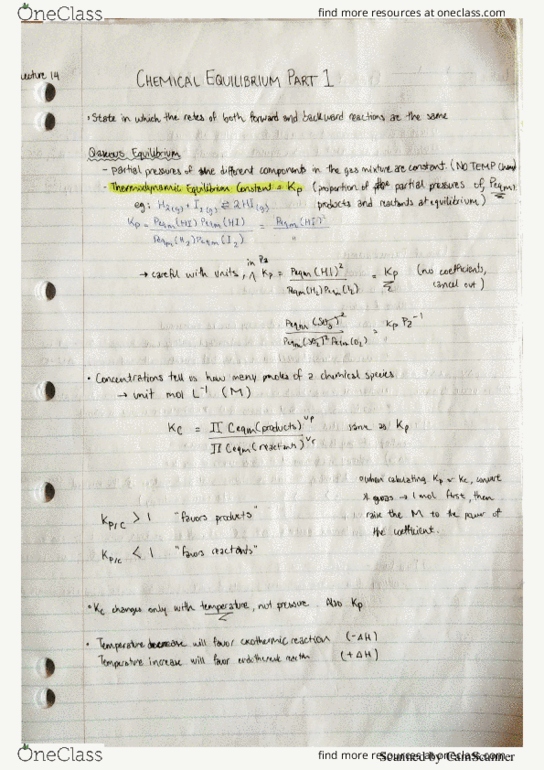 OneClass
find more resources at oneclass.com
Lecture 14
CHEMICAL EQUILIBRIUM PART 1
• State in which the rates of both forward and backward reactions are the same
Gaseous Equilibrium
- partial pressures of the different components in the gas mixture are constant. (NO TEMP
- Thermodynamic Equilibrium Constant = Kp (proportion of partial pressures of Peqm.
products and reactants at equilibrium)
eg: H2(g) + I2(g) ⇌ 2HI(g)
Kp = Peqm(HI) Peqm(HI) / Peqm(H2) Peqm(I2) = Peqm(HI)²
→ careful with units, in Pa Kp = Peqm(HI)² / Peqm(H2) Peqm(I2) = Kp (no coefficients, cancel out)
Peqm(SO3)² / Peqm(SO2)² Peqm(O2) = Kp Pa⁻¹
• Concentrations tell us how many moles of a chemical species
→ unit mol L⁻¹ (M)
Kc = Π Ceqm(products)^νp / Π Ceqm(reactions)^νr same as Kp
when calculating Kp or Kc, convert
→ 1 mol first, then
raise the M to the power of
the coefficient.
Kp/c > 1 "favors products"
Kp/c < 1 "favors reactants"
• Kc changes only with temperature, not pressure. Also Kp
• Temperature decrease will favor exothermic reaction (-ΔH)
Temperature increase will favor endothermic (+ΔH)
OneClass
find more resources at oneclass.com
Scanned by CamScanner